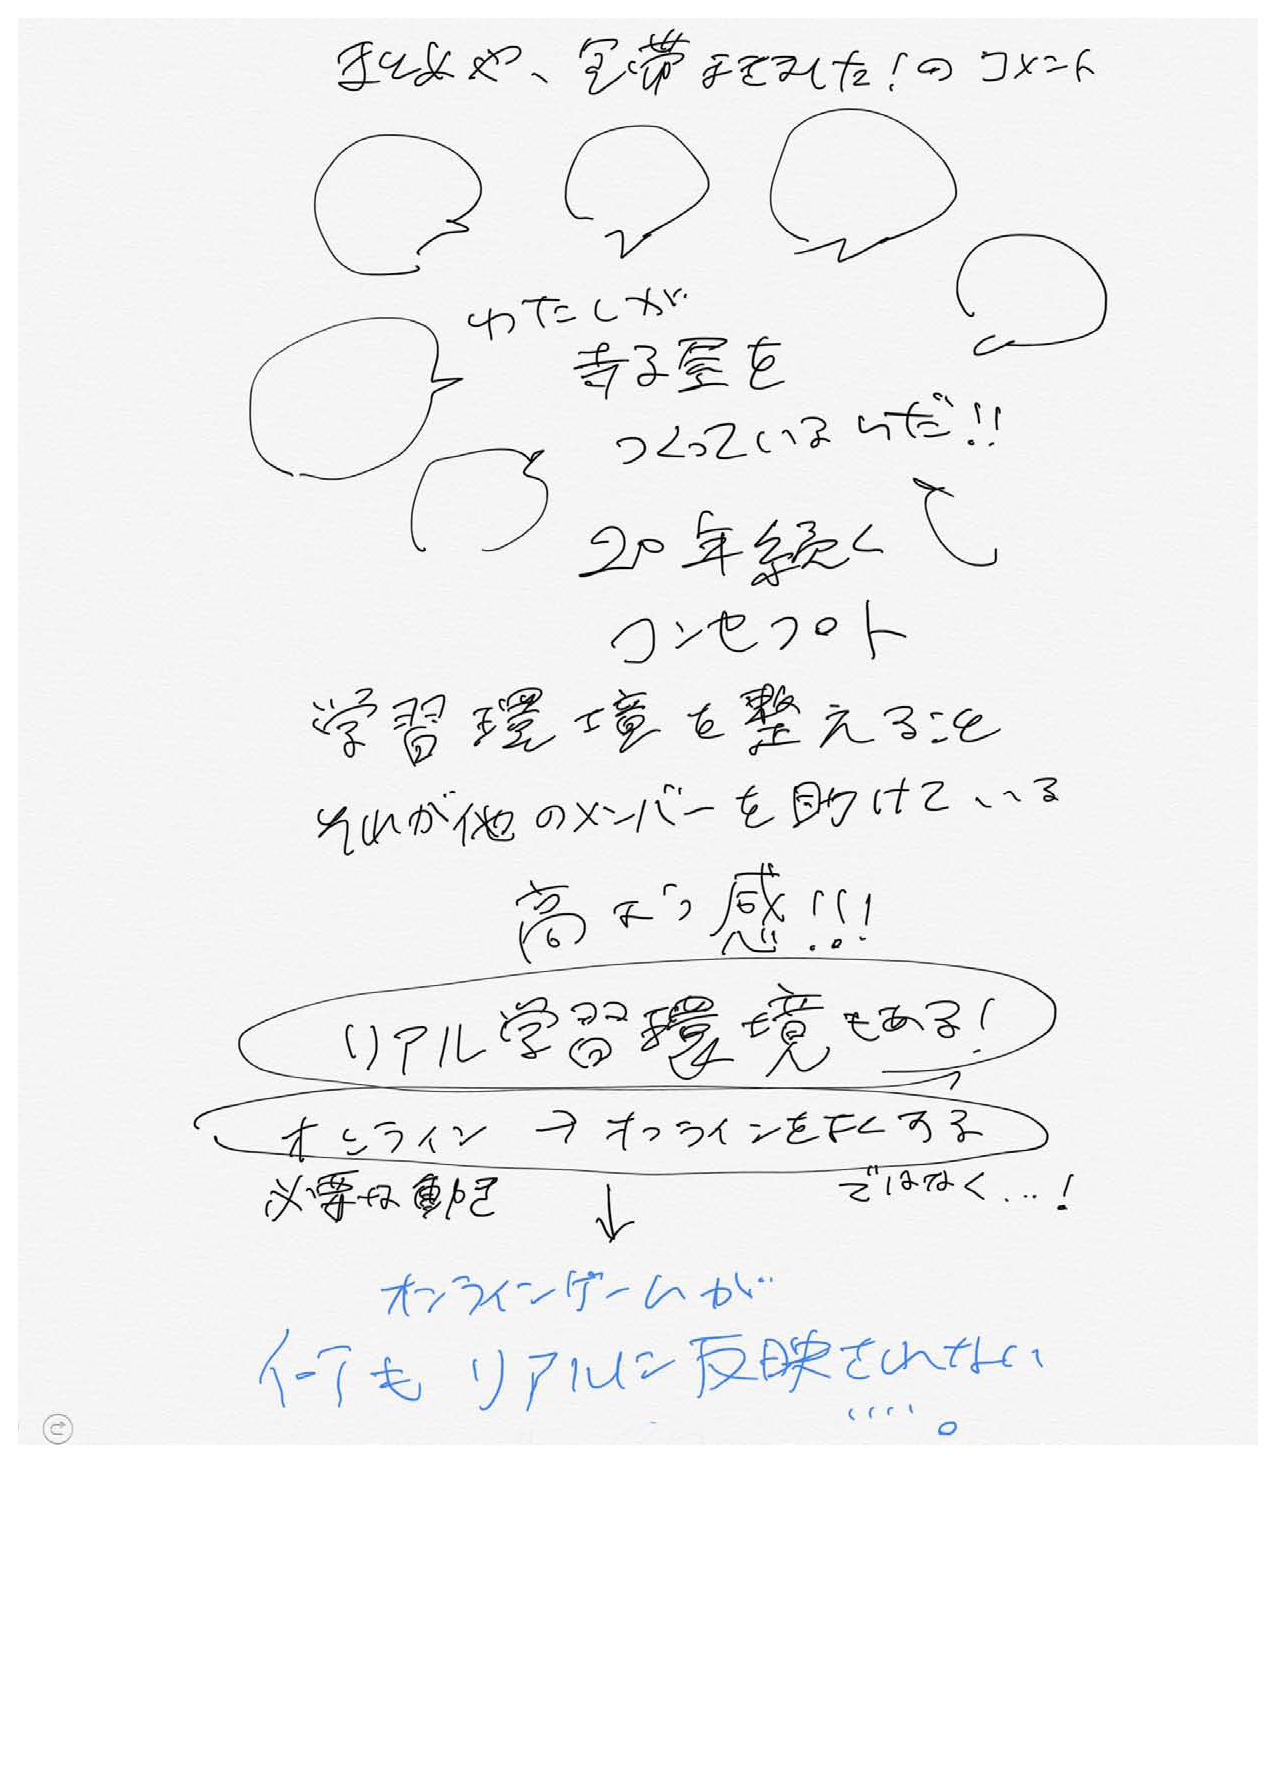 まとめや、包帯まきました!のコメント
わたしが
寺子屋を
つくっているんだ!!
20年続く
コンセプト
学習環境を整えること
それが他のメンバーを助けている
高よう感!!!
リアル学習環境もある!
オンライン → オンラインをよくする
必要な動
ではなく…!
↓
オンラインゲームが
何も リアルに反映されない
....。